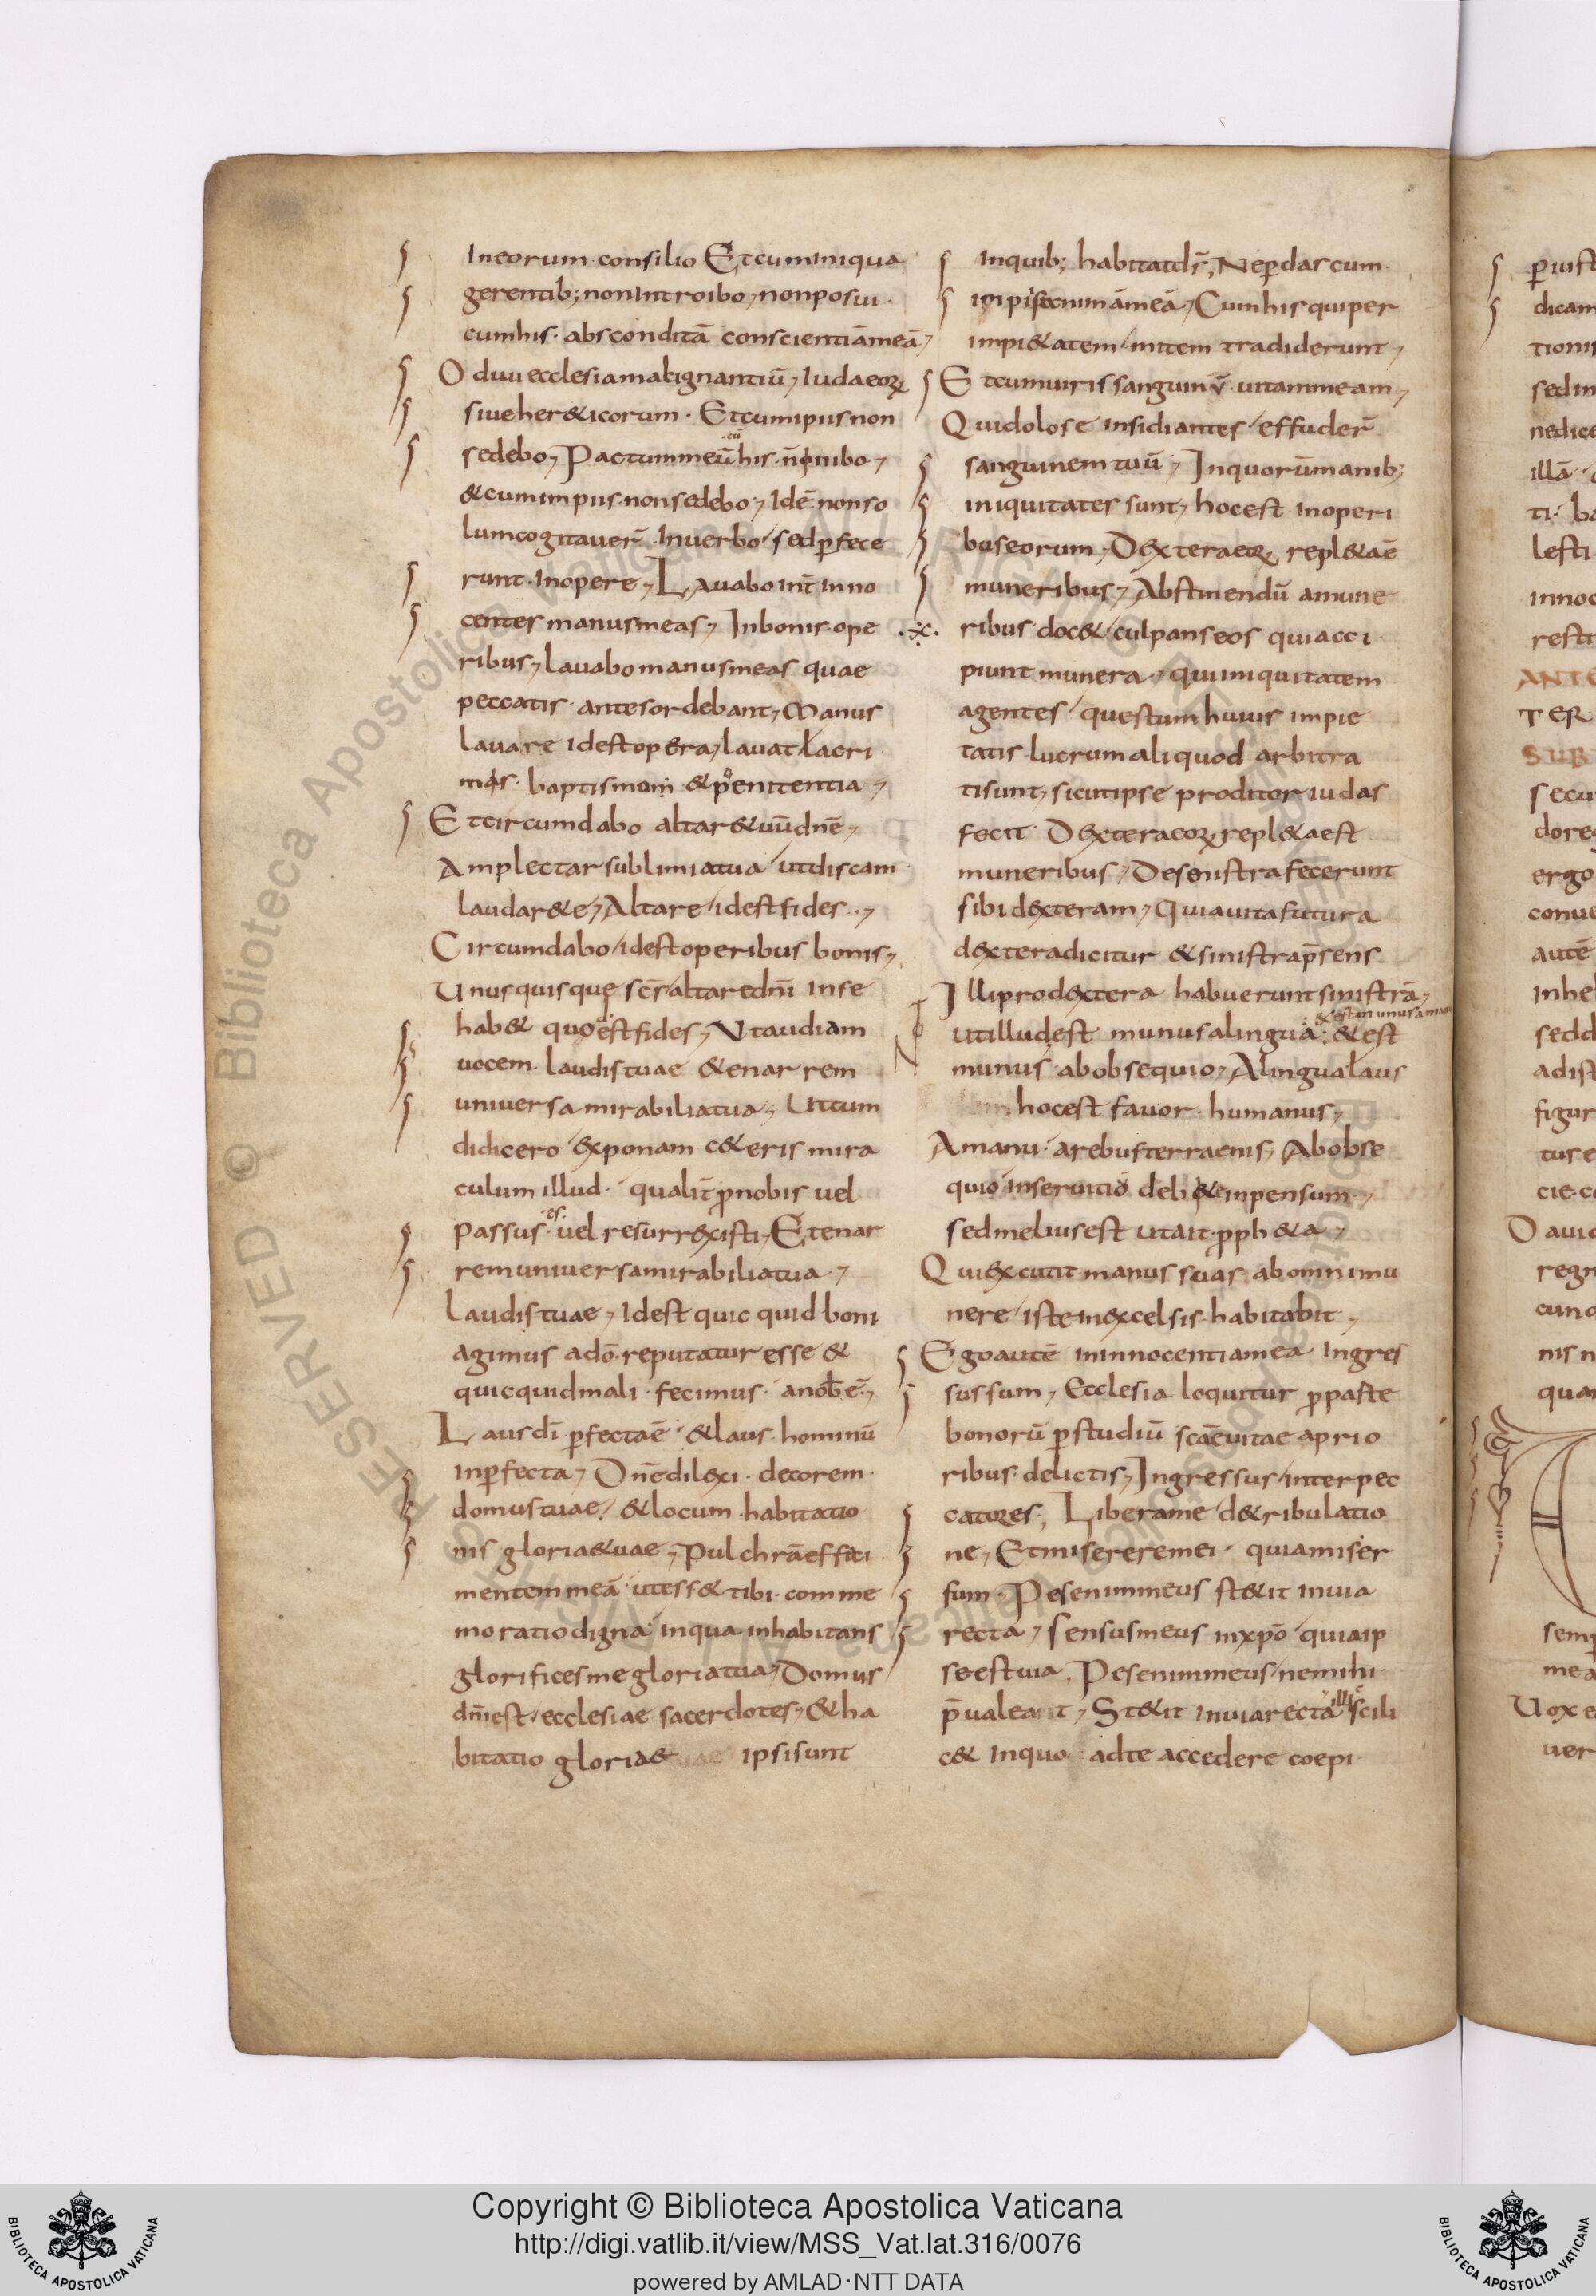 In eorum consilio Et cum iniqua
gerentib; non introibo, non posui
cum his absconditā conscientiā meā,
Odivi ecclesiam malignantiū, Iudaeoꝝ
sive her&icorum. Et cum impiis non
sedebo, Pactum meū cū his nō inibo,
& cum impiis non sedebo, Idē non so
lum cogitaver̄ In verbo sed ꝑfece
runt In opere, Lavabo int̄ inno
centes manus meas, In bonis ope
ribus, lavabo manus meas quae
peccatis ante sordebant, Manus
lavare id est opera, lavat lacri
mis baptismom & poenitentia,
Et circumdabo altar& uū dnē,
Amplectar sublimia tua ut discam
laudar& e, Altare id est fides,
Circumdabo id est operibus bonis,
Unus quisque scs̄ altare dnī In se
hab& quod est fides, Ut audiam
vocem laudis tuae & enarrem
universa mirabilia tua, Ut cum
didicero exponam c&eris mira
culum illud qualit̄ ꝓ nobis vel
passus es vel resurrexisti, Et enar
rem universa mirabilia tua,
Laudis tuae, Id est quic quid boni
agimus a dō reputatur esse &
quicquid mali fecimus a nob̄ ē,
Laus dī ꝑfecta ē & laus hominū
inꝑfecta, Dnē dilexi decorem
domus tuae, & locum habitatio
nis gloria& uae, Pulchrā effici
mentem meā ut ess& tibi comme
moratio digna in qua inhabitans
glorifices me gloria tua, Domus
dnī est ecclesiae sacerdotes, & ha
bitatio gloria& uae ipsi sunt
In quib; habitat dr̄, Ne ꝑdas cum
impiis animā meā, Cum his qui per
impi&atem mitem tradiderunt,
Et cum viris sanguinū vitam meam,
Qui dolose insidiantes effuder̄
sanguinem tuū, In quorū manib;
iniquitates sunt, hoc est In operi
bus eorum, Dextera eoꝝ repl&a ē
muneribus, Abstinendū a mune
ribus doc& culpans eos qui acci
piunt munera, qui iniquitatem
agentes questum huius impie
tatis lucrum aliquod arbitra
ti sunt, sicut ipse proditor iudas
fecit Dextera eoꝝ repl&a est
muneribus, De senistra fecerunt
sibi dexteram, Quia vita futura
dextera dicitur & sinistra p̄sens
Illi pro dextera habuerunt sinistrā,
& est munus a manu
ut illud est munus a lingua & est
munus ab obsequio, A lingua laus
hoc est favor humanus,
A manu a rebus terraenis, Ab obse
quio In servitio deb& e inpensum,
sed melius est ut ait ꝓph&a,
Qui excutit manus suas ab omni mu
nere iste in excelsis habitabit,
Ego autē in innocentia mea Ingres
sus sum, Ecclesia loquitur ꝓ paste
bonorū ꝑ studiū scāe vitae a prio
ribus delictis, Ingressus inter pec
catores, Libera me d& ribulatio
ne, Et miserere mei quia miser
sum, Pes enim meus st&it in via
recta, Sensus meus in xpō quia ip
se est via, Pes enim meus ne mihi
p̄valeant, St&it in via recta illic scili
c& In quo ad te accedere coepi
ꝑ iust
dicam
tionis
sed in
nedice
illā
ti ba
lesti
innoc
resti
ANTE
TER
SUB
secu
dore
ergo
conve
autē
Inhe
sedd
adist
figur
tur e
cie c
David
regn
cunc
nis n
quan
semp
mea
Vox e
ver
Copyright © Biblioteca Apostolica Vaticana
http://digi.vatlib.it/view/MSS_Vat.lat.316/0076
powered by AMLAD·NTT DATA
BIBLIOTECA APOSTOLICA VATICANA
BIBLIOTECA APOSTOLICA VATICANA